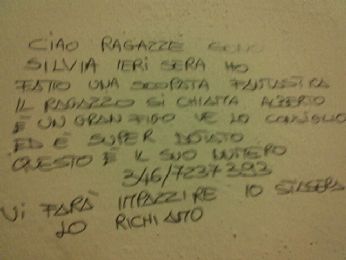 CIAO RAGAZZE SONO
SILVIA IERI SERA HO
FATTO UNA SCOPATA FANTASTICA
IL RAGAZZO SI CHIAMA ALBERTO
È UN GRAN FIGO VE LO CONSIGLIO
ED È SUPER DOTATO
QUESTO È IL SUO NUMERO
346/7237393
VI FARÀ IMPAZZIRE IO STASERA
LO RICHIAMO